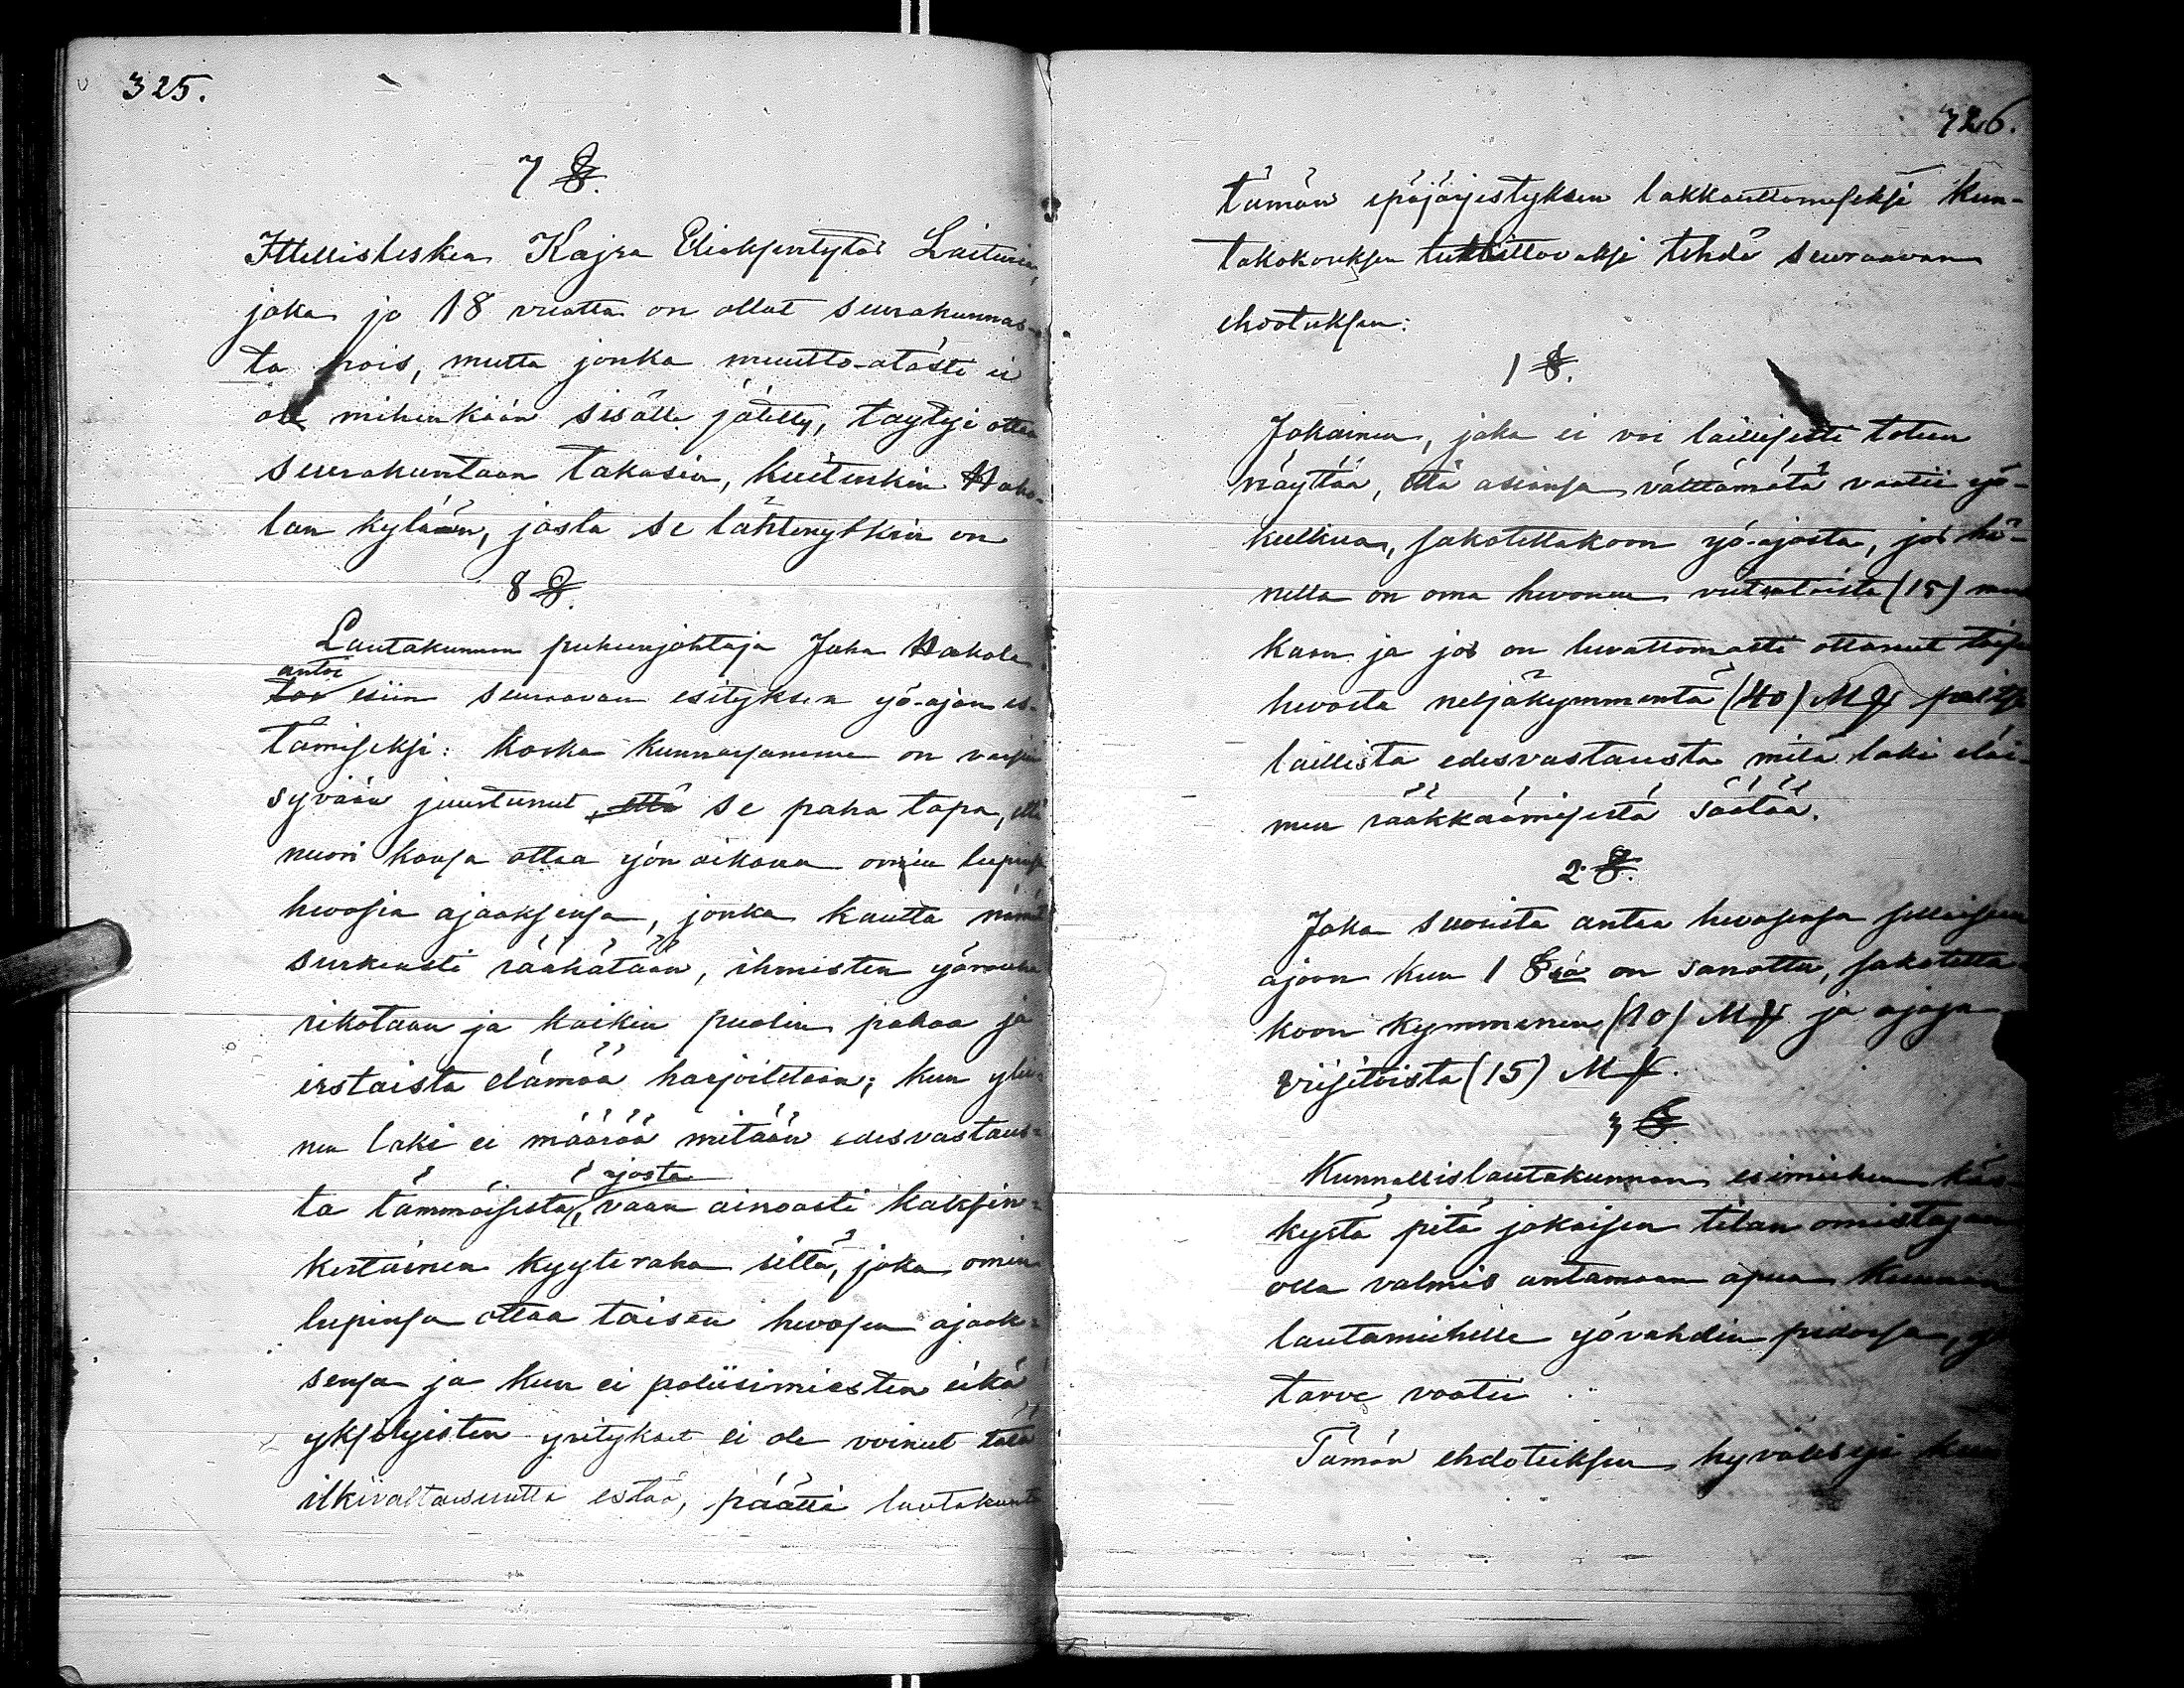 325.
7 §.
Ittellisleskea Kajsa Eliaksentytär Laituria,
joka jo 18 vuotta on ollut seurakunnas-
ta pois, mutta jonka muutto-atästi ei
ole mihenkään sisälle jätetty, täytyi ottaa
seurakuntaan takasin, kuitenkin Hako-
lan kylään, josta se lähtenytkin on
8 §.
Lautakunnan puheenjohtaja Juha Hakola
antoi
esiin seuraavan esityksen yö-ajon es-
tämiseksi: Koska kunnassamme on varsin
syvään juurtunut että se paha tapa, että
nuori kansa ottaa yön aikana omin lupinsa
hevosia ajaaksensa, jonka kautta nämät
surkeasti rääkätään, ihmisten yörauha
rikotaan ja kaikin puolin pahaa ja
irstaista elämää harjoitetaan; kun ylei-
nen laki ei määrää mitään edesvastaus-
ajosta
ta tämmöisestä, vaan ainoasti kaksin-
kertainen kyytiraha siltä, joka omin
lupinsa ottaa toisen hevosen ajaak-
sensa ja kun ei poliisimiesten eikä
yksityisten yritykset ei ole voinut tätä
ilkivaltaisuutta estää, päätti lautakunta
326.
tämän epäjärjestyksen lakkauttamiseksi kun-
takokouksen tutkittavaksi tehdä seuraavan
ehdotuksen:
1 §.
Jokainen, joka ei voi laillisesti toteen
näyttää, että asiansa välttämätä vaatii yö-
kulkua, sakotettakoon yö-ajosta, jos hä-
nella on oma hevonen viitentoista (15) mar
kaan ja jos on luvattomasti ottanut toisen
hevosta neljäkymmentä (40) Mk paitse
laillista edesvastausta mitä laki eläi-
men rääkkäämisestä säätää.
2 §.
Joka suosista antaa hevosensa sellaiseen
ajoon kun 1 §sä on sanottu, sakotetta-
koon kymmenen (10) Mk ja ajaja
viisitoista (15) Mk.
3 §
Kunnallislautakunnan esimiehen käs-
kystä pitä jokaisen tilan omistajan
olla valmis antamaan apua kunnan
lautamiehille yövahdin pidossa,
tarve vaatii.
Tämän ehdotuksen hyväksyi kun